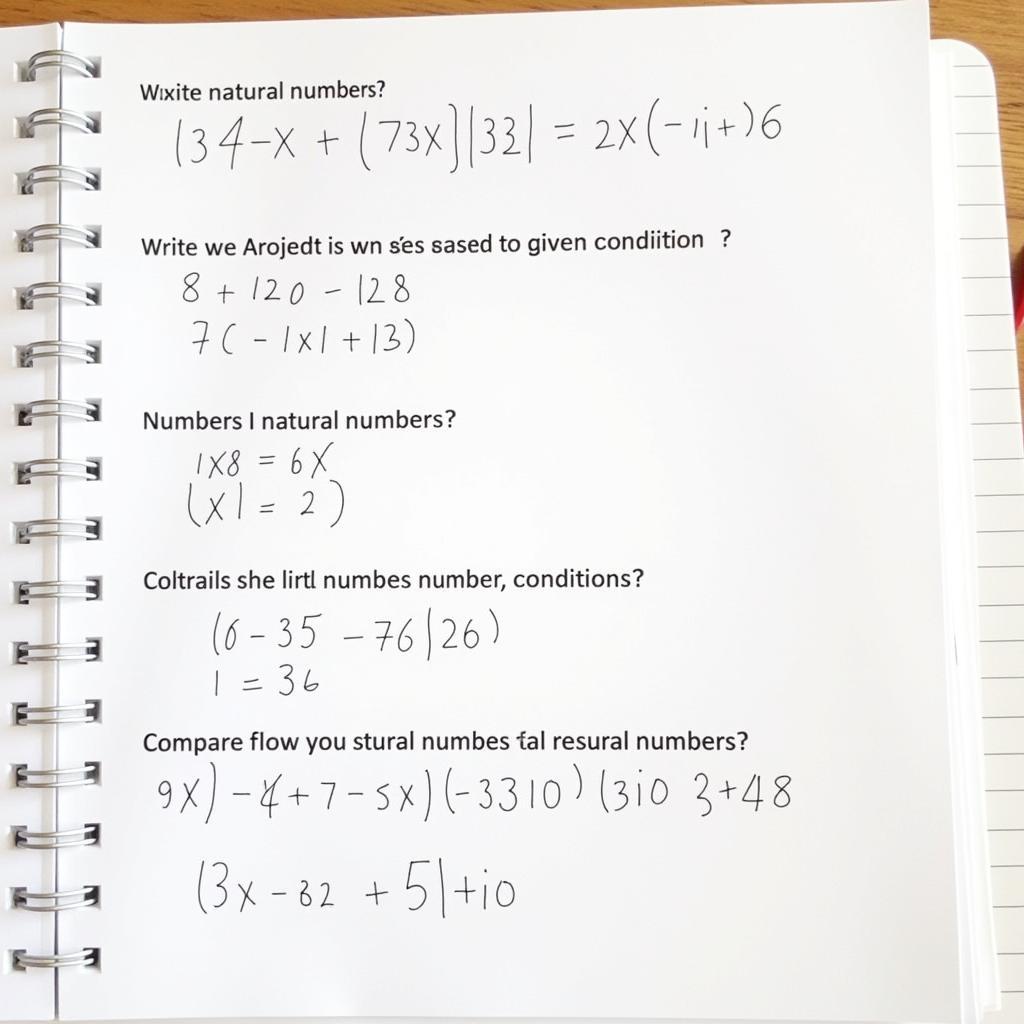 Wxite natural numbers?
(34-x + (73x]|33| = 2x(-1j+)6
Write we Arojedt is wn s'es sased to given condiition ?
8 + 120 - 128
7( - |x| + 13)
Numbers I natural numbers?
1x8 = 6x
(x| = 2 )
Coltrails she lirtl numbes number, conditions?
(6 - 35 - 76|26)
1 = 36
Compare flow you stural numbes fal resural numbers?
9x) - 4 + 7 - 5x)(-3310) (3i0 3+48
(3x - 32 + 5|+i0